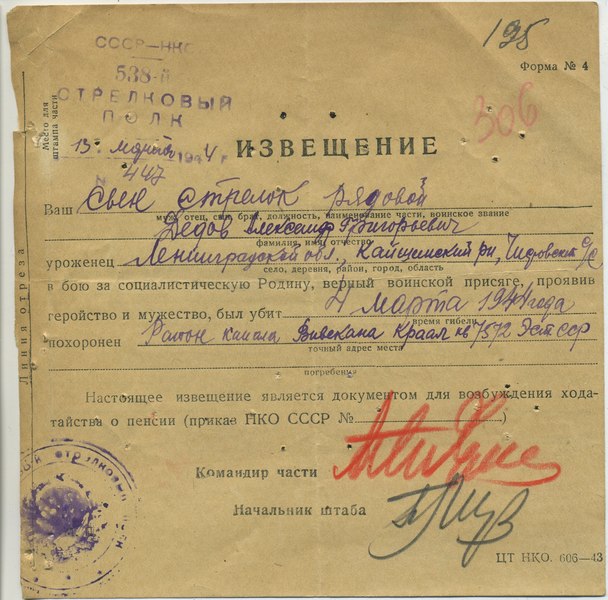 195
Форма № 4
306
СССР–НКО
538-й
СТРЕЛКОВЫЙ
ПОЛК
13 марта 1944 г.
№ 447
Место для
штампа части
ИЗВЕЩЕНИЕ
Ваш сын стрелок рядовой
муж, отец, сын, брат, должность, наименование части, воинское звание
Дедов Александр Григорьевич
фамилия, имя, отчество
уроженец Ленинградской обл., р-н, с/с
село, деревня, район, город, область
в бою за социалистическую Родину, верный воинской присяге, проявив
геройство и мужество, был убит 4 марта 1944 года
время гибели
похоронен Район Вивекана Краап 7572 Эст ССР
точный адрес места
погребения
Линия отреза
Настоящее извещение является документом для возбуждения хода-
тайства о пенсии (приказ НКО СССР № )
Командир части
Начальник штаба
ЦТ НКО. 606—43